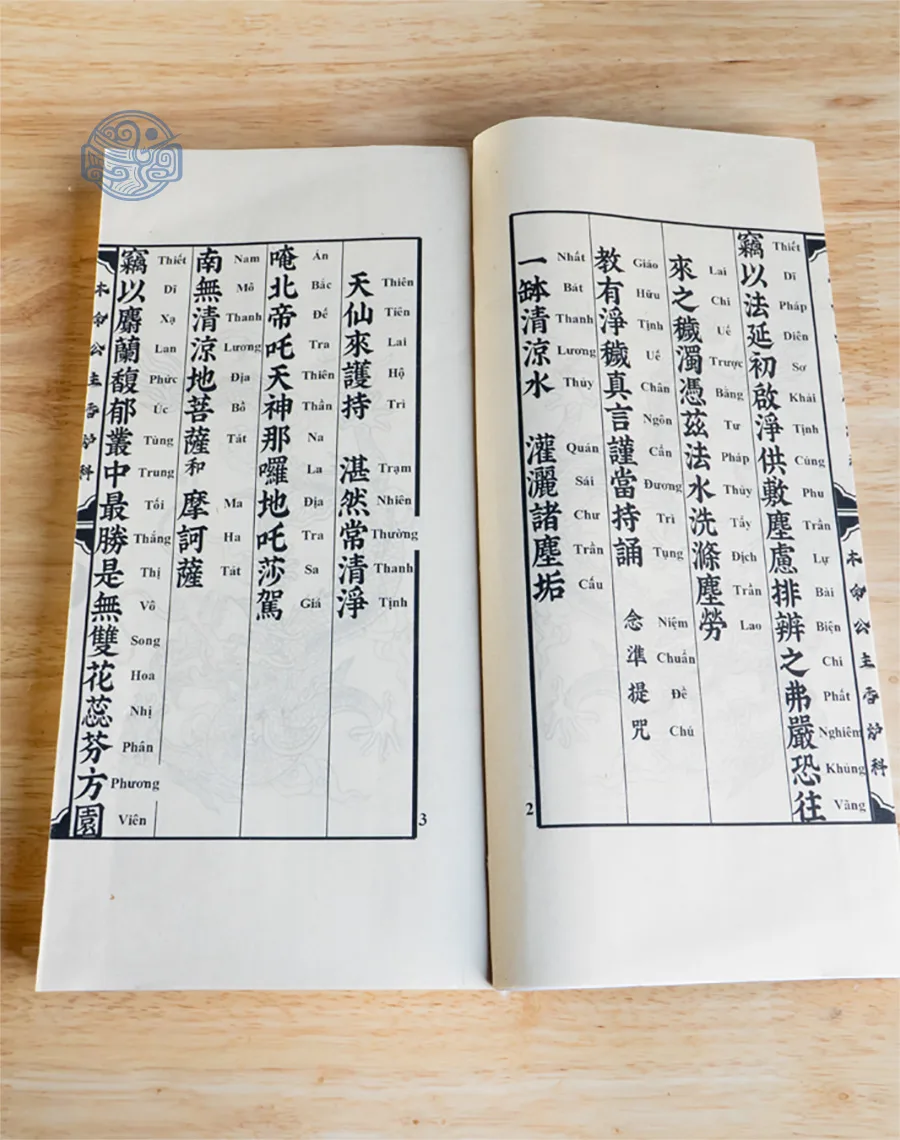 木命公主香炉科
竊以法延初啟淨供敷塵慮排辨之弗嚴恐往
Thiết Dĩ Pháp Diên Sơ Khải Tịnh Cúng Phu Trần Lự Bài Biện Chi Phất Nghiêm Khủng Vãng
來之穢濁憑茲法水洗滌塵勞
Lai Chi Uế Trược Bằng Tư Pháp Thủy Tẩy Địch Trần Lao
教有淨穢真言謹當持誦 念準提咒
Giáo Hữu Tịnh Uế Chân Ngôn Cẩn Đương Trì Tụng Niệm Chuẩn Đề Chú
一缽清涼水 灌灑諸塵垢
Nhất Bát Thanh Lương Thủy Quán Sái Chư Trần Cấu
2
天仙來護持 湛然常清淨
Thiên Tiên Lai Hộ Trì Trạm Nhiên Thường Thanh Tịnh
唵北帝吒天神那囉地吒莎駕
Án Bắc Đế Tra Thiên Thần Na La Địa Tra Sa Giá
南無清涼地菩薩和摩訶薩
Nam Mô Thanh Lương Địa Bồ Tát Ma Ha Tát
竊以麝蘭馥郁叢中最勝是無雙花蕊芬方園
Thiết Dĩ Xạ Lan Phức Úc Tùng Trung Tối Thắng Thị Vô Song Hoa Nhị Phân Phương Viên
木命公主香炉科
3